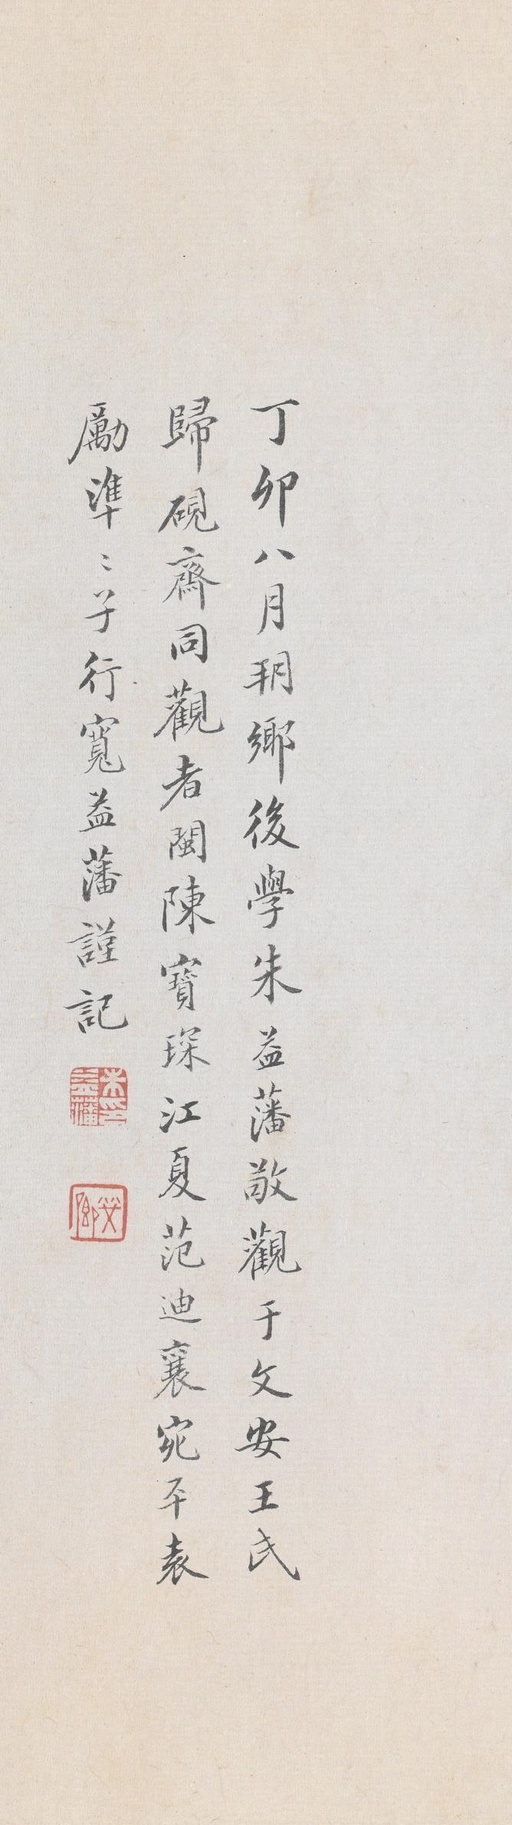 丁卯八月玥鄉後學朱益藩敬觀于文安王氏
歸硯齋同觀者閩陳寶琛江夏范迪襄宛平袁
勵準〻子行寬益藩謹記
朱益藩印
艾卿